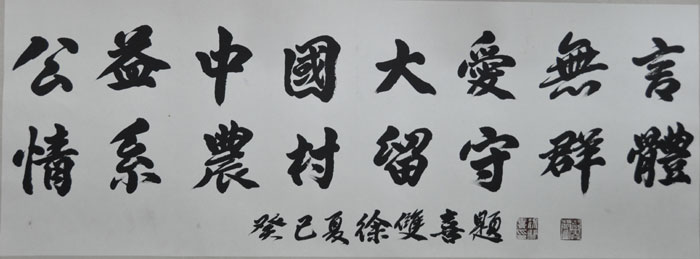 公益中國大愛無言
情系農村留守群體
癸巳夏徐雙喜題